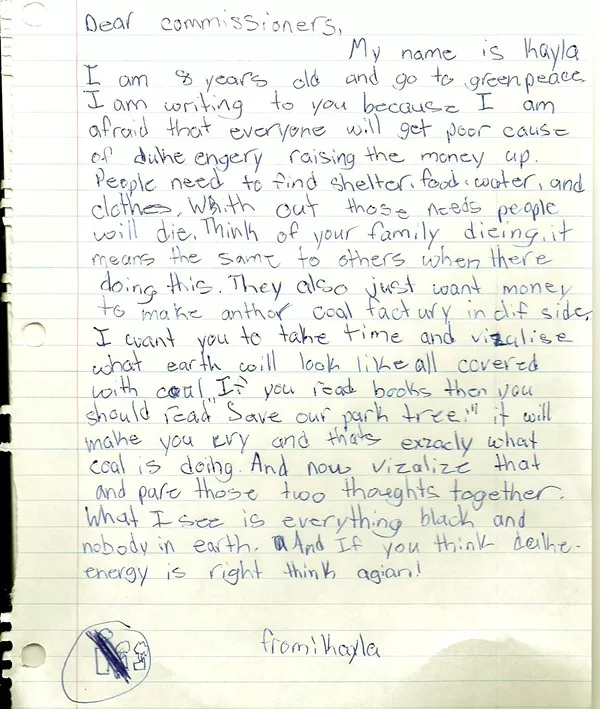 Dear commissioners,
My name is Kayla
I am 8 years old and go to greenpeace.
I am writing to you because I am
afraid that everyone will get poor cause
of duke engery raising the money up.
People need to find shelter, food, water, and
clothes. Whith out those needs people
will die. Think of your family dieing, it
means the same to others when there
doing this. They also just want money
to make anthor coal factury in clif side,
I want you to take time and vizalise
what earth will look like all covered
with coal. If you read books then you
should read "Save our park tree!" it will
make you cry and thats exzacly what
coal is doing. And now vizalize that
and pare those two thoughts together.
What I see is everything black and
nobody in earth. And If you think duke-
energy is right think agian!
from: Kayla